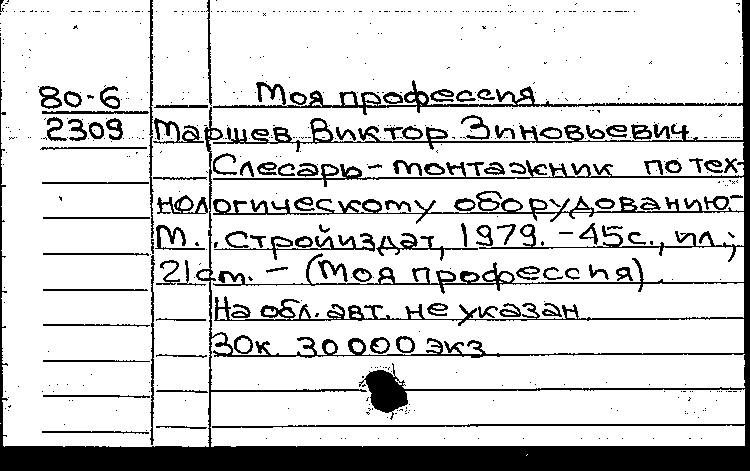 80-6 Моя профессия.
2309 Маршев, Виктор Зиновьевич.
Слесарь-монтажник по тех-
нологическому оборудованию.-
М.: Стройиздат, 1979. - 45с., ил.;
21 см. - (Моя профессия).
На обл. авт. не указан.
30к. 30000 экз.